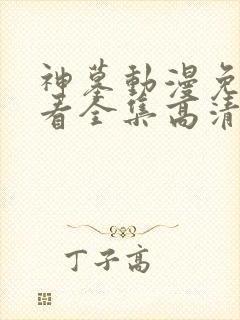 神墓動漫免
看全集高清
丁子高